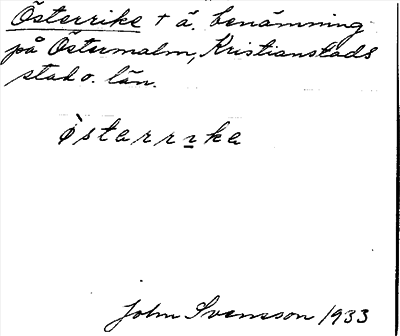 Österrike + ä. benämning
på Östermalm, Kristianstads
stad o. län.
ò̷starrıka
John Svensson 1933